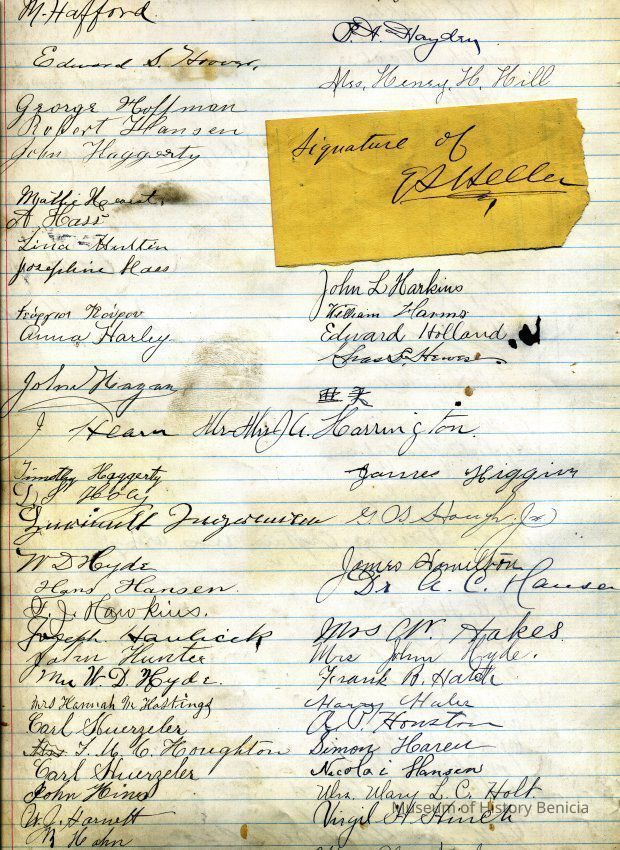 M. Hafford
P. H. Hayden
Edward S. Hoover.
Mrs. Henry H. Hill
George Hoffman
Robert Hansen
John Haggerty
Signature of
E S Heller
Mattie
A Hass
Lina Husten
Josephine Hass
John L Harkins
William Harms
Anna Harley
Edward Holland
Chas F. Hewes
John Hagan
J Hearn Mr & Mrs J. A. Harrington.
Timothy Haggerty
James Higgins
G B Hough Jr
W D Hyde
James Hamilton
Hans Hansen.
Dr A. C. Hansen
F. J. Hawkins.
Joseph Havlicek
Mrs C W. Hakes.
John Hunter
Mrs John Hyde.
Mrs W. D. Hyde.
Frank B. Hatch
Mrs Hannah M Hastings
Harry
Carl Huerzeler
A. V. Houston
S. M. C. Houghton
Simon Haren
Carl Huerzeler
Nicolai Hansen
John Hind
Mrs. Mary L. C. Holt
W. J. Harnett
Virgil H
Hahn
Museum of History Benicia